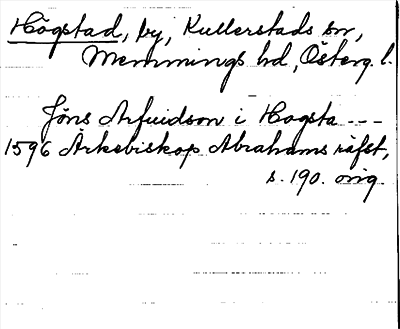 Högstad, by, Kullerstads sn,
Memmings hd, Österg. l.
Jöns Arfuidson i Hogsta ---
1596 Ärkebiskop Abrahams räfst,
s. 190. orig